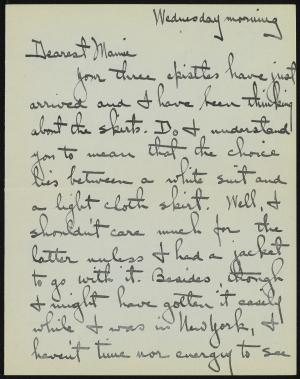 Wednesday morning
Dearest Mamie
Your three epistles have just
arrived and I have been thinking
about the skirts. Do I understand
you to mean that the choice
lies between a white suit and
a light cloth skirt. Well, I
shouldn't care much for the
latter unless I had a jacket
to go with it. Besides, though
I might have gotten it easily
while I was in New York, I
haven't time nor energy to see